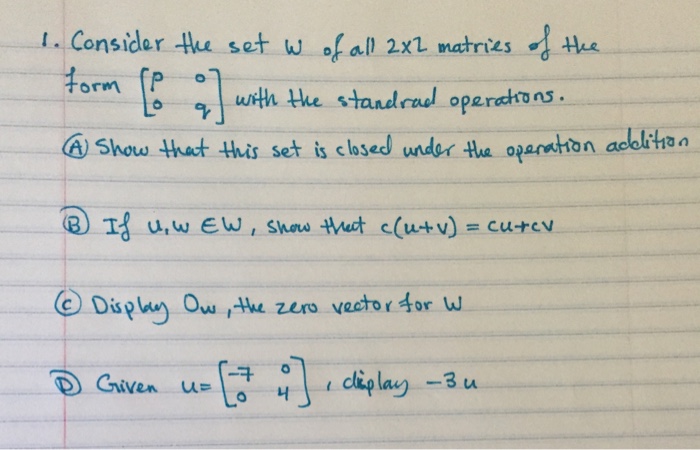 1. Consider the set W of all 2x2 matries of the
form [p 0
0 q] with the standrad operations.
(A) Show that this set is closed under the operation addition
(B) If u,w ∈ W, show that c(u+v) = cu+cv
(C) Display Ow, the zero vector for W
(D) Given u= [-7 0
0 4], display -3u